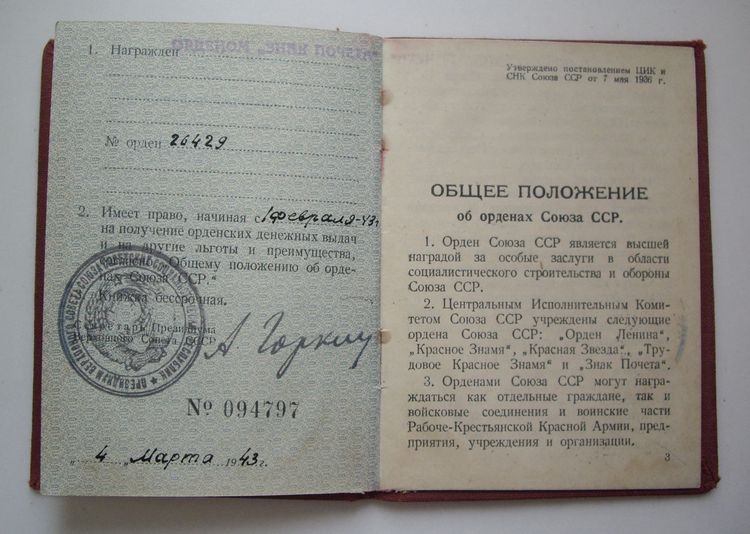 1. Награжден
ОРДЕНОМ „ЗНАК ПОЧЕТА“
№ орден 26429
2. Имеет право, начиная с 1 февраля-43г
на получение орденских денежных выдач
и на другие льготы и преимущества,
согласно „Общему положению об орде-
нах Союза ССР.“
Книжка бессрочная.
Секретарь Президиума
Верховного Совета СССР
А Горкин
№ 094797
„ 4 „ Марта 1943г.
Утверждено постановлением ЦИК и
СНК Союза ССР от 7 мая 1936 г.
ОБЩЕЕ ПОЛОЖЕНИЕ
об орденах Союза ССР.
1. Орден Союза ССР является высшей
наградой за особые заслуги в области
социалистического строительства и обороны
Союза ССР.
2. Центральным Исполнительным Коми-
тетом Союза ССР учреждены следующие
ордена Союза ССР: „Орден Ленина“,
„Красное Знамя“, „Красная Звезда“, „Тру-
довое Красное Знамя“ и „Знак Почета“.
3. Орденами Союза ССР могут награ-
ждаться как отдельные граждане, так и
войсковые соединения и воинские части
Рабоче-Крестьянской Красной Армии, пред-
приятия, учреждения и организации.
3